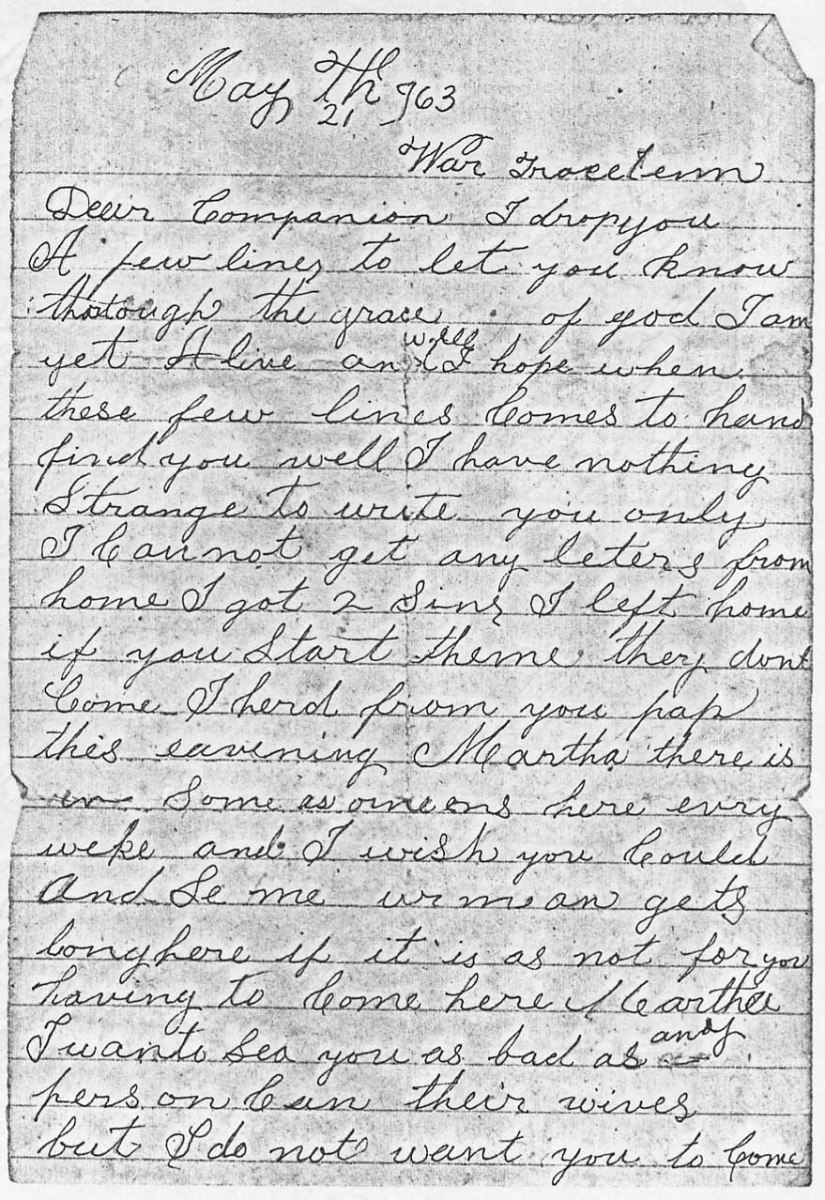 May 21th 63
War Trace tenn
Dear Companion I drop you
A few lines to let you know
that tough the grace of god I am
yet Alive an well I hope when
these few lines Comes to hand
find you well I have nothing
Strange to write you only
I Can not get any leters from
home I got 2 Sins I left home
if you Start theme they dont
Come I herd from you pap
this eavening Martha there is
Some here evry
weke and I wish you Could
And Se me man gets
long here if it is as not for you
having to Come here Martha
I wanto Sea you as bad as any
person Can their wives
but I do not want you to Come